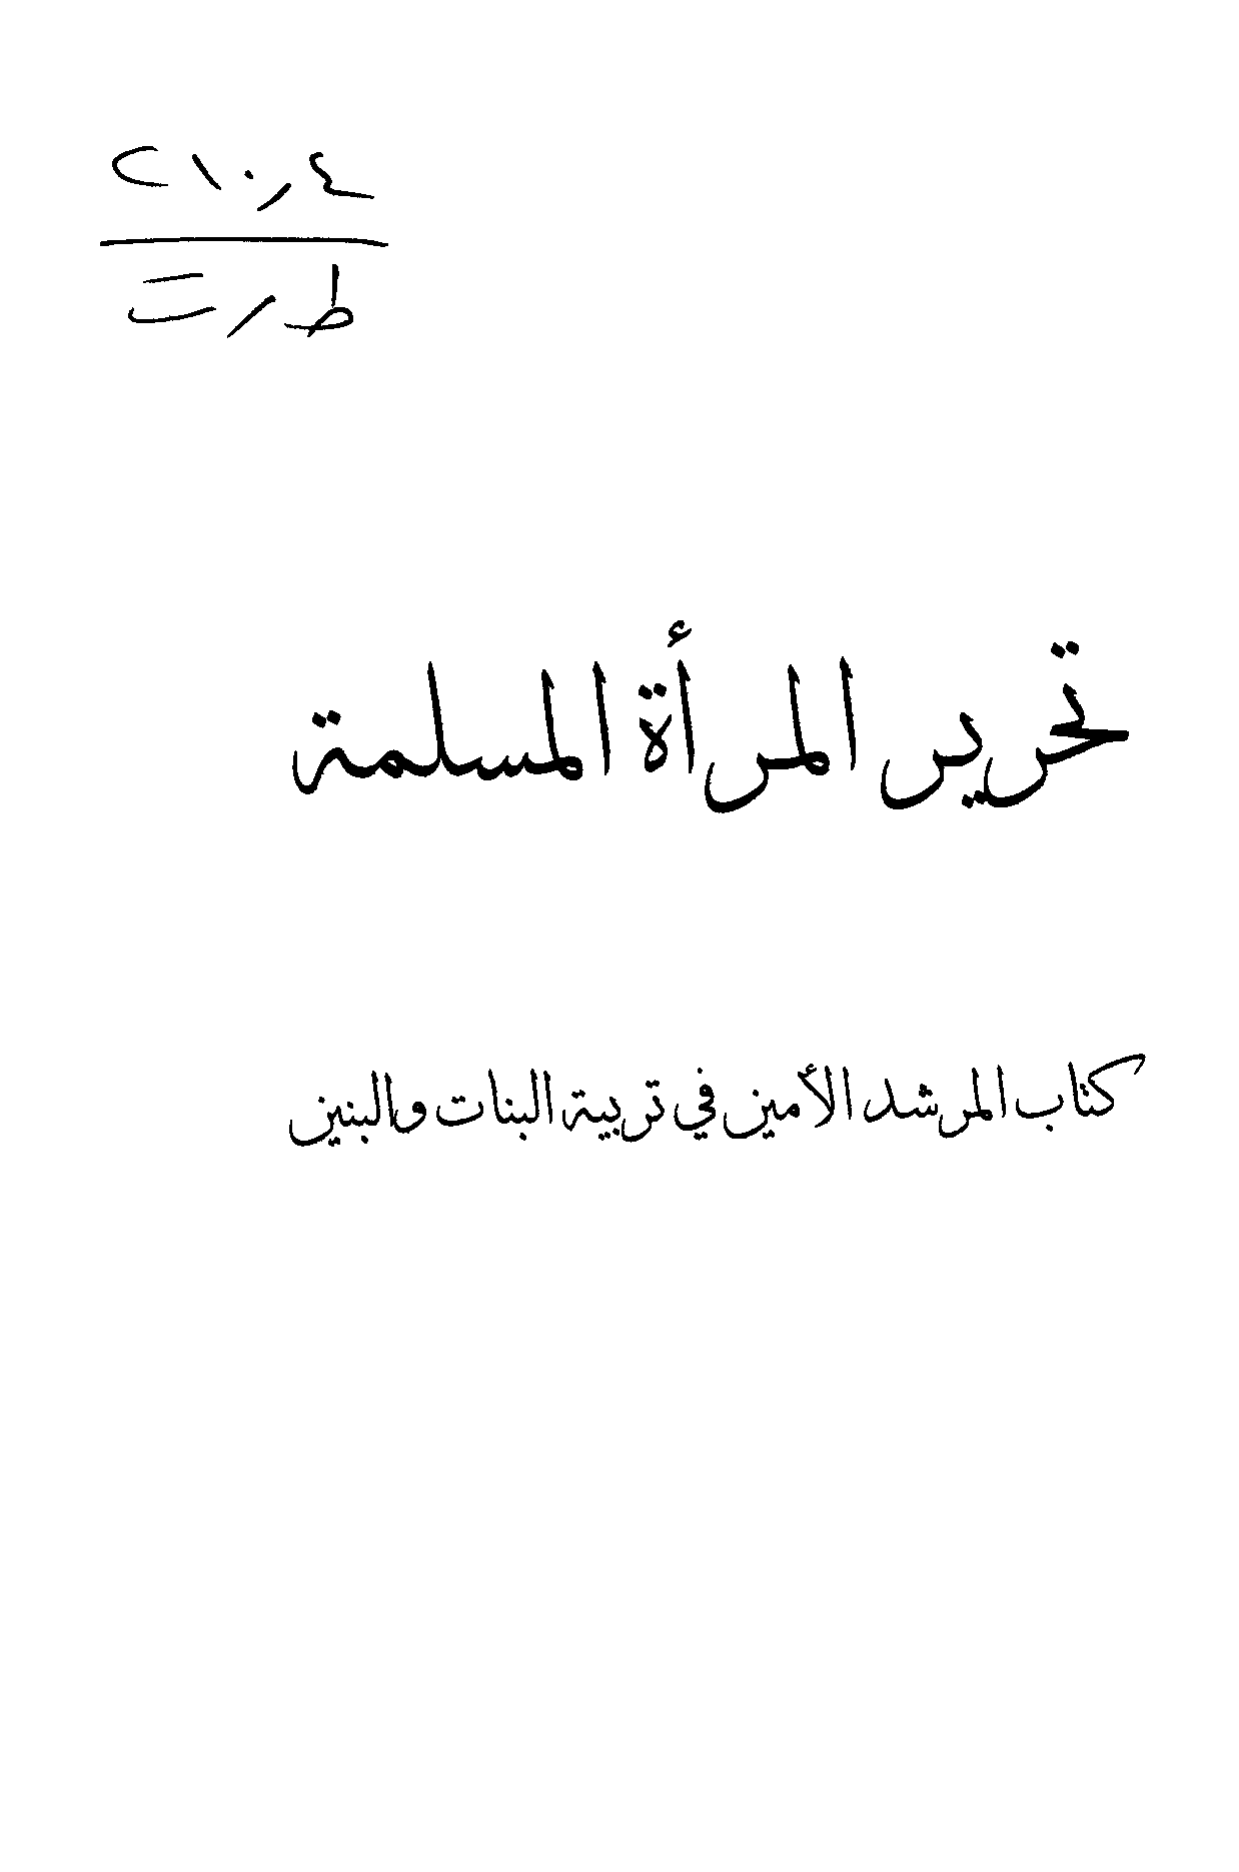 ٢١٠,٤
ط ر ت
تحرير المرأة المسلمة
كتاب المرشد الأمين في تربية البنات والبنين